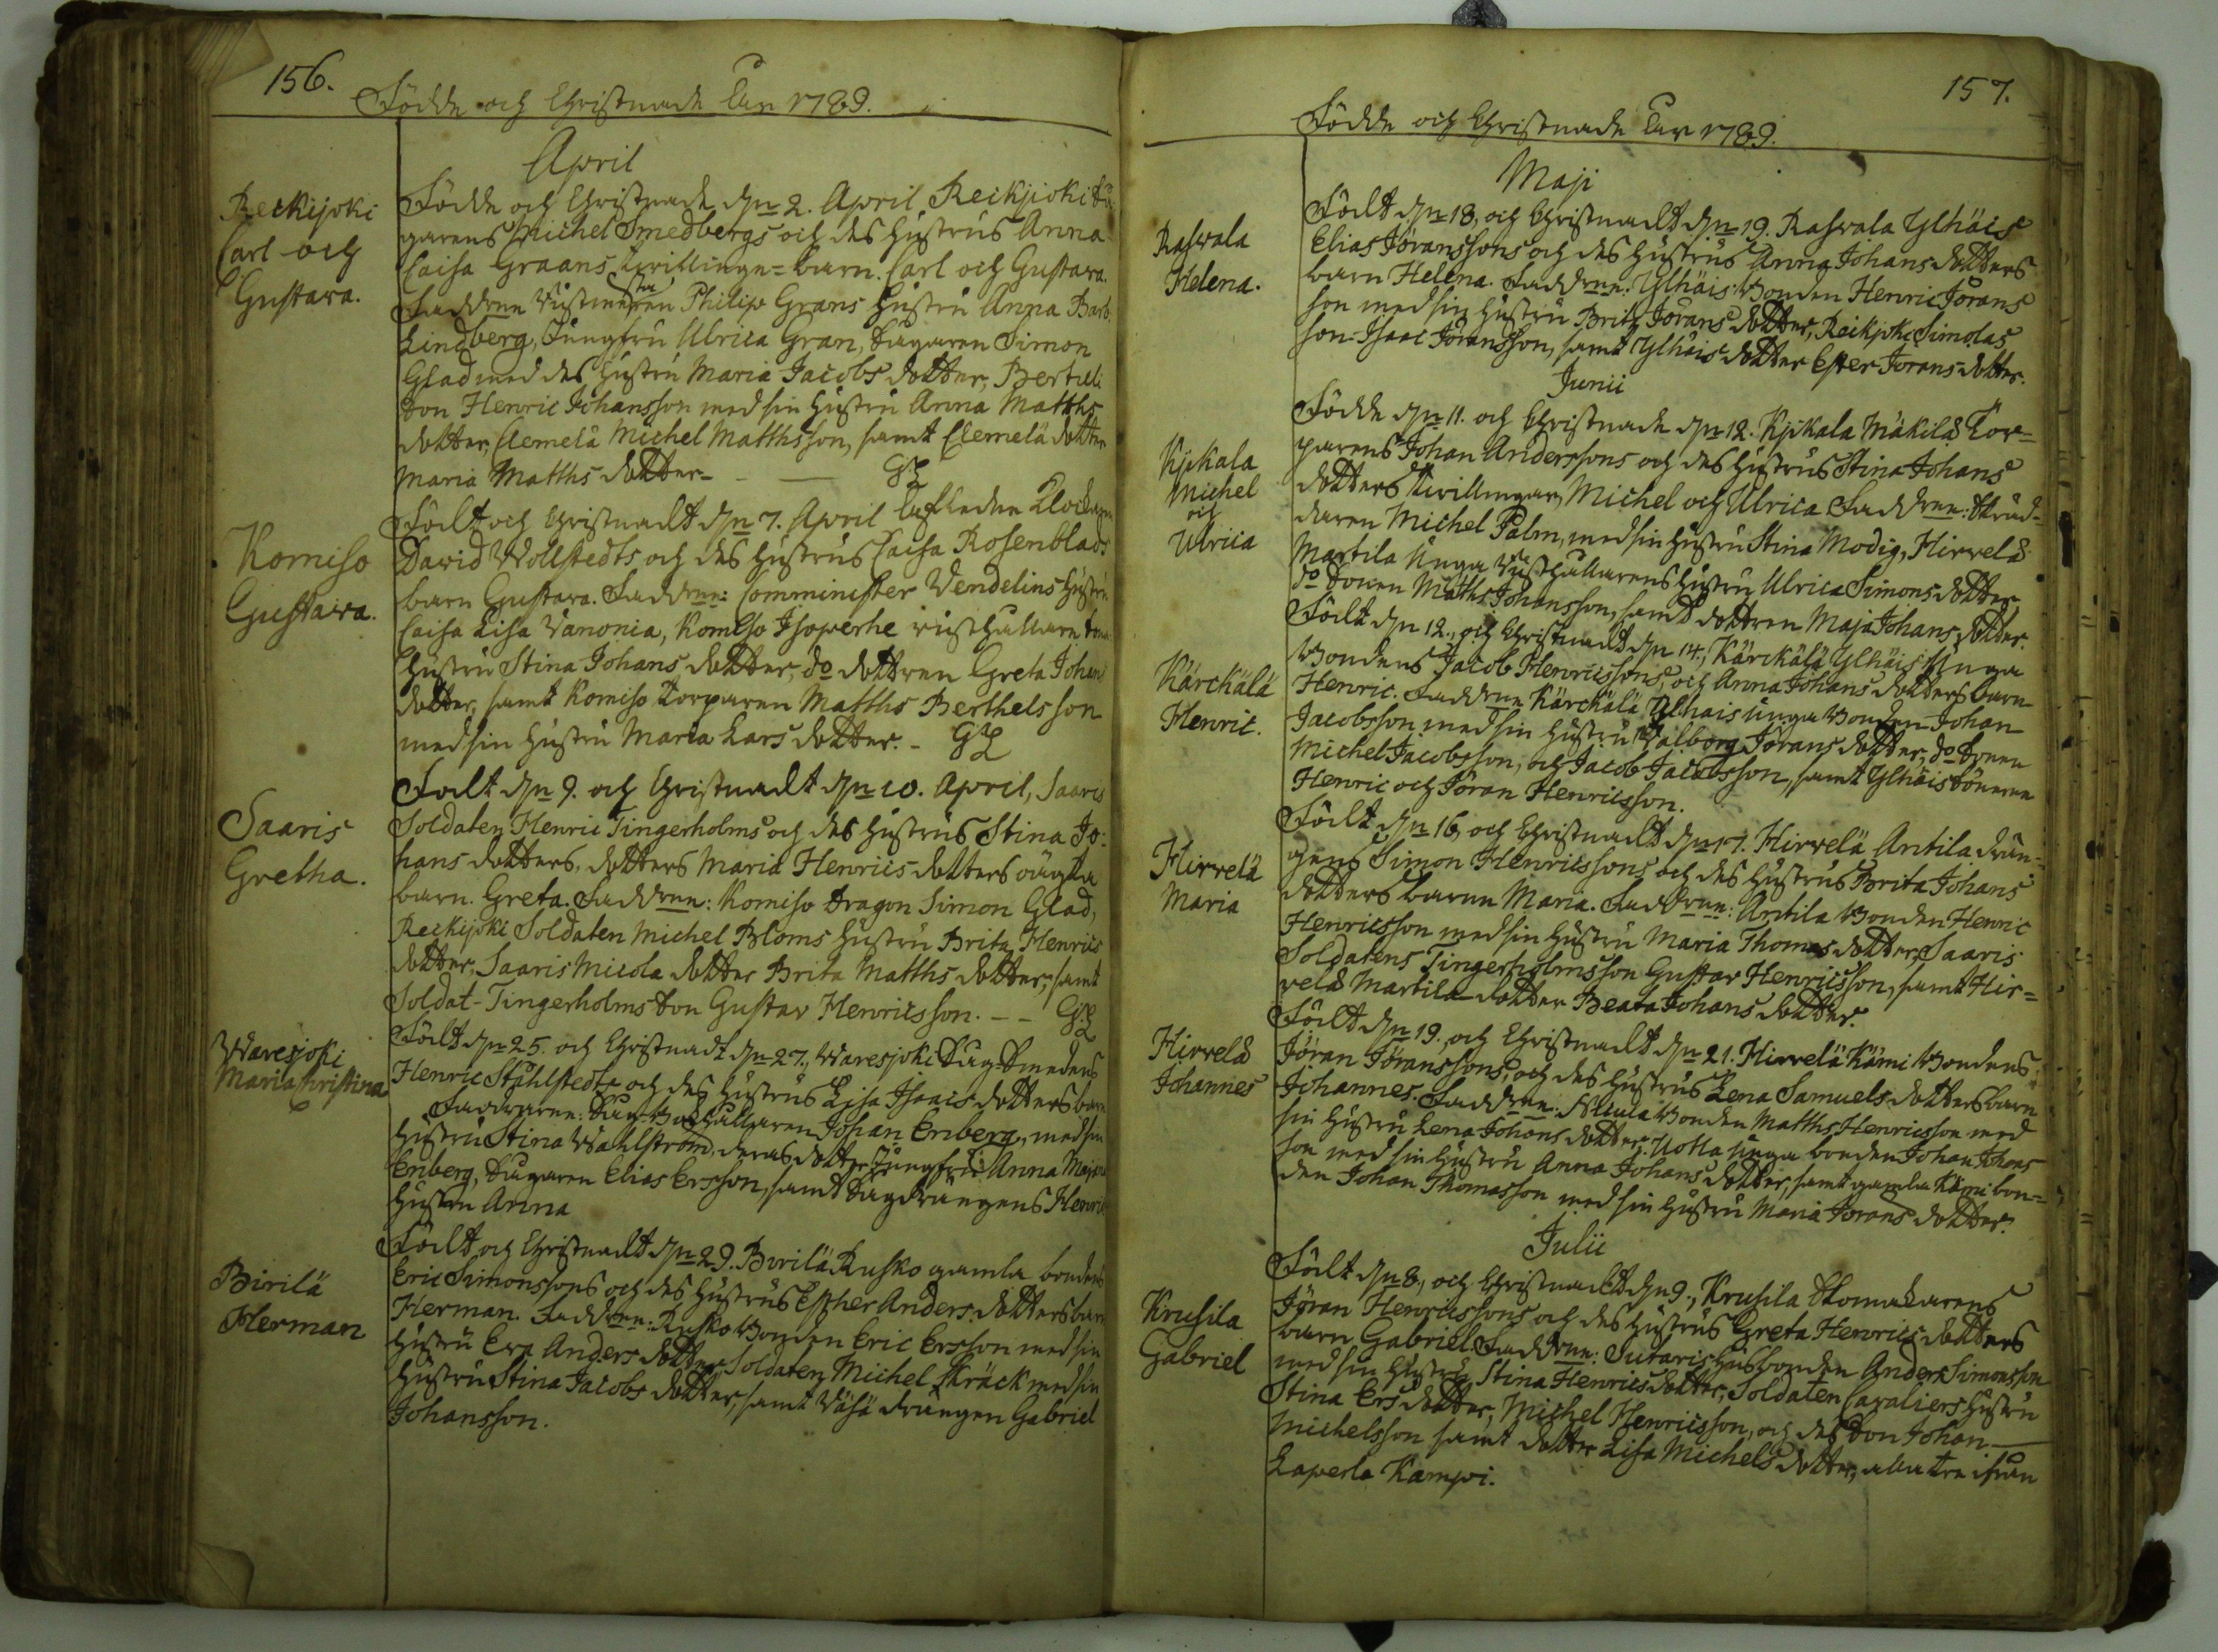 156.
Födde och Christnade Åhr 1789.
April
Reckijoki
Carl och
Gustava.
Födde och Christnade d. 2. April Reickjoki Så-
garens Michel Smedbergs och des hustrus Anna
Caisa Graans Tvillinge-barn. Carl och Gustava.
Faddrne Philip Grans hustru Anna Barb.
Lindberg, Jungfru Ulrica Gran, Sågaren Simon
Glad med des hustru Maria Jacobs dotter, Bertuli
Son Henric Johansson med sin hustru Anna Matths
dotter, Clemelä Michel Matthsson, samt Clemelä dotter
Maria Matths dotter
Komiso
Gustava.
Födt och Christnadt d. 7. April Klockaren
David Wollstedts och des hustrus Caisa Rosenblads
barn Gustava. Faddrne: Comminister Vendelins hustru
Caisa Lisa Vanonia, Komiso Isoperhe rusthållare
hustru Stina Johans dotter, do dottren Greta Johans
dotter, samt Komiso Torparen Matths Berthelsson
med sin hustru Maria Lars dotter.
Saaris
Gretha.
Födt d. 9. och Christnadt d. 10. April, Saaris
Soldaten Henric Tingerholms och des hustrus Stina Jo-
hans dotters, dotters Maria Henrics dotters oägta
barn. Greta. Faddrne: Komiso Dragon Simon Glad,
Reckijoki Soldaten Michel Bloms hustru Brita Henrics
dotter, Saaris Micola dotter Brita Matths dotter, samt
Soldat-Tingerholms Son Gustav Henricsson.
Waresjoki
Maria Christina
Födt d. 25. och Christnadt d. 27. Waresjoki Sag Smedens
Henric Ståhlstedts och des hustrus Lisa Isaacs dotters barn
Faddrarne: Johan Enberg, med sin
hustru Stina Wahlström, deras dotter Jungfru Anna Maja
Enberg, Sågaren Elias Ersson, samt Sagdrängens Henric
hustru Anna
Birilä
Herman
Födt och Christnadt d. 29. Birilä Rusko gamla bondens
Eric Simonssons och des hustrus Esther Anders dotters barn
Herman. Faddrne: Rusko bonden Eric Ersson med sin
hustru Eva Anders dotter, Soldaten Michel Skräck med sin
hustru Stina Jacobs dotter, samt Väsä drängen Gabriel
Johansson.
157.
Födde och Christnade Åhr 1789.
Maji
Raswala
Helena.
Födt d. 18. och Christnadt d. 19. Raswala Ylhäis
Elias Jöranssons och des hustrus Anna Johans dotters
barn Helena. Faddrne: Ylhäis bonden Henric Jörans
son med sin hustru Brita Jörans dotter, Reikjoki Simolas
son Isaac Jöransson, samt Ylhäis dotter Ester Jorans dotter.
Junii
Kjikala
Michel
och
Ulrica
Födde d. 11. och Christnade d. 12. Kjikala Mäkilä Tor-
parens Johan Anderssons och des hustrus Stina Johans
dotters Tvillingar, Michel och Ulrica. Faddrne: Skräd-
daren Michel Palm, med sin hustru Stina Modig, Hirvelä
Martila Unga Rusthållarens hustru Ulrica Simons dotter,
do Sonen Matths Johansson, samt dottren Maja Johans dotter.
Kärckälä
Henric.
Födt d. 12., och Christnadt d. 14., Kärckälä Ylhäis Unga
Bondens Jacob Henricssons, och Anna Johans dotters barn
Henric. Faddrne Kärckälä Ylhais unga bonden Johan
Jacobsson med sin hustru Valborg Jörans dotter, do Sonen
Michel Jacobsson, och Jacob Jacobsson, samt Ylhäis Sönerne
Henric och Jöran Henricsson.
Hirvelä
Maria
Födt d. 16, och Christnadt d. 17. Hirvelä Antila drän-
gens Simon Henricssons och des hustrus Brita Johans
dotters barn Maria. Faddrne: Antila bonden Henric
Henricsson med sin hustru Maria Thomas dotter, Saaris
Soldatens Tingerholms son Gustav Henricsson, samt Hir-
velä Martila dotter Beata Johans dotter.
Hirvelä
Johannes
Födt d. 19., och Christnadt d. 21. Hirvelä Kämi bondens
Jöran Jöranssons, och des hustrus Lena Samuels dotters barn
Johannes. Faddrne: Allula bonden Matths Henricsson med
sin hustru Lena Johans dotter, Uotla unga bonden Johan Johans
son med sin hustru Anna Johans dotter, samt gamla Kämi bon-
den Johan Thomasson med sin hustru Maria Jorans dotter.
Julii
Krusila
Gabriel
Födt d. 8., och Christnadt d. 9., Krusila Skomakarens
Jöran Henricssons och des hustrus Greta Henrics dotters
barn Gabriel. Faddrne: Sutaris husbonden Anders Simonsson
med sin hustru Stina Henricsdotter, Soldaten Cavaliers hustru
Stina Ers dotter, Michel Henricsson, och des Son Johan
Michelsson samt dotter Lisa Michels dotter, alla tre ifrån
Laperla Kampi.